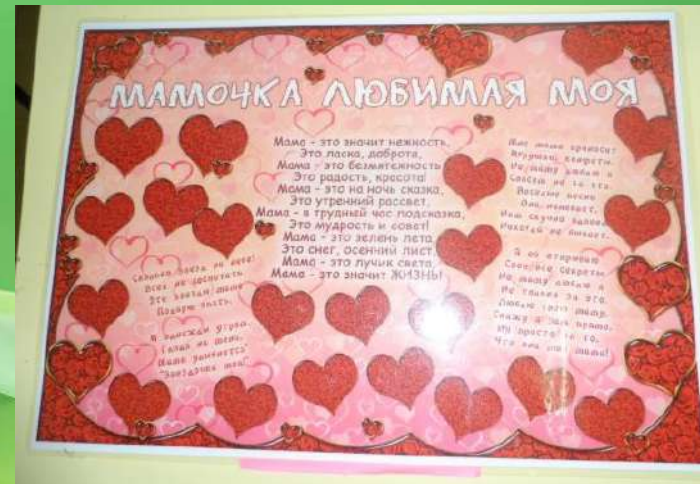 МАМОЧКА ЛЮБИМАЯ МОЯ
Мама - это значит нежность,
Это ласка, доброта,
Мама - это безмятежность
Это радость, красота!
Мама - это на ночь сказка,
Это утренний рассвет,
Мама - в трудный час подсказка,
Это мудрость и совет!
Мама - это зелень лета,
Это снег, осенний лист,
Мама - это лучик света,
Мама - это значит ЖИЗНЬ!
Сколько звезд на небе!
Всех не сосчитать.
Все звезды маме
Подарю опять.
И однажды утром,
Глядя на меня,
Мама улыбнется
"Звездочка моя!"
Мне мама приносит
Игрушки, конфеты,
Но маму люблю я
Совсем не за это.
Веселые песни
Она напевает,
Нам скучно вдвоем
Никогда не бывает.
Я ей открываю
Свои все секреты.
Но маму люблю я
Не только за это.
Люблю свою маму,
Скажу я вам прямо,
Ну просто за то,
Что она моя мама!